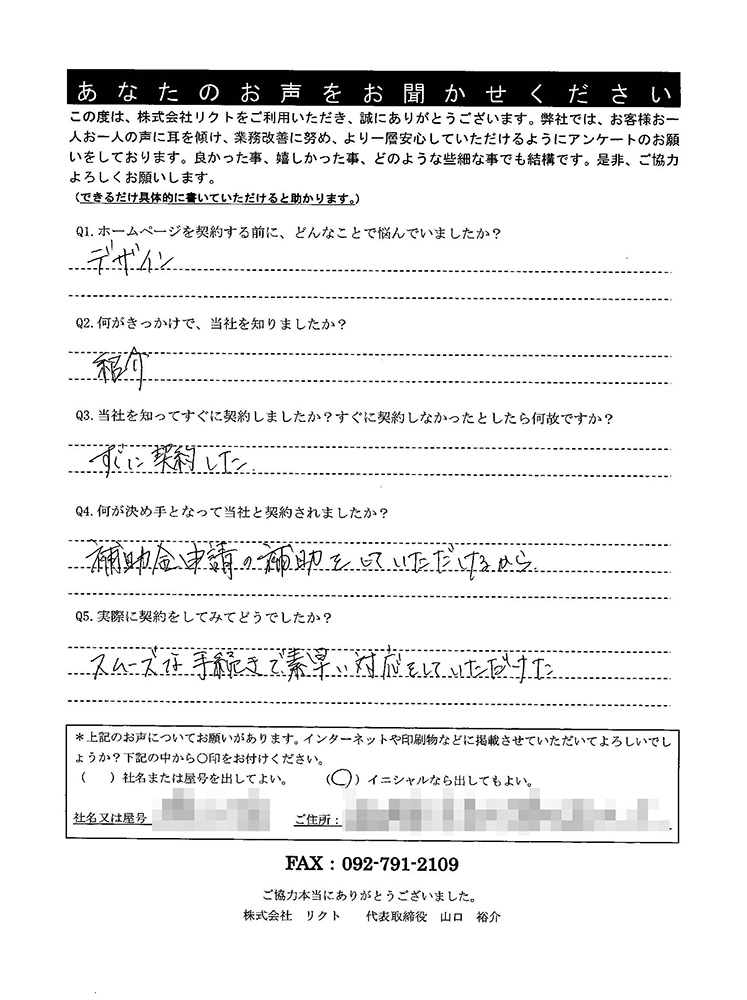 あなたのお声をお聞かせください
この度は、株式会社リクトをご利用いただき、誠にありがとうございます。弊社では、お客様お一
人お一人の声に耳を傾け、業務改善に努め、より一層安心していただけるようにアンケートのお願
いをしております。良かった事、嬉しかった事、どのような些細な事でも結構です。是非、ご協力
よろしくお願いします。
(できるだけ具体的に書いていただけると助かります。)
Q1.ホームページを契約する前に、どんなことで悩んでいましたか?
デザイン
Q2.何がきっかけで、当社を知りましたか?
紹介
Q3.当社を知ってすぐに契約しましたか?すぐに契約しなかったとしたら何故ですか?
すぐに契約した.
Q4.何が決め手となって当社と契約されましたか?
補助金申請の補助をしていただけるから.
Q5.実際に契約をしてみてどうでしたか?
スムーズな手続きで素早い対応をしていただけた
*上記のお声についてお願いがあります。インターネットや印刷物などに掲載させていただいてよろしいでし
ょうか?下記の中から〇印をお付けください。
(　)社名または屋号を出してよい。　(〇)イニシャルなら出してもよい。
社名又は屋号　ご住所:
FAX:092-791-2109
ご協力本当にありがとうございました。
株式会社　リクト　代表取締役　山口　裕介